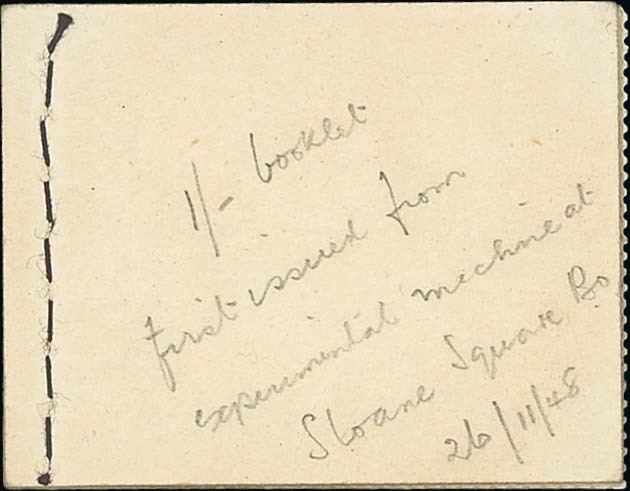 1/- booklet
first issued from
experimental machine at
Sloane Square Bo
26/11/48